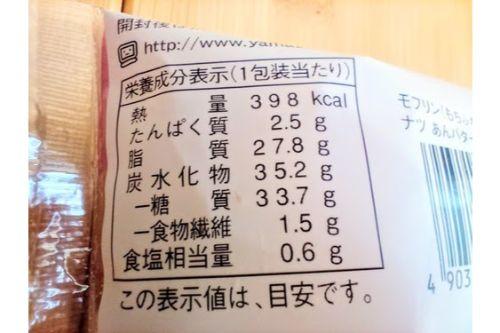 開封後は
http://www.yama
栄養成分表示(1包装当たり)
熱量 398 kcal
たんぱく質 2.5 g
脂質 27.8 g
炭水化物 35.2 g
―糖質 33.7 g
―食物繊維 1.5 g
食塩相当量 0.6 g
この表示値は、目安です。
モフリン(もちふ
ナツ あんバター
4 903